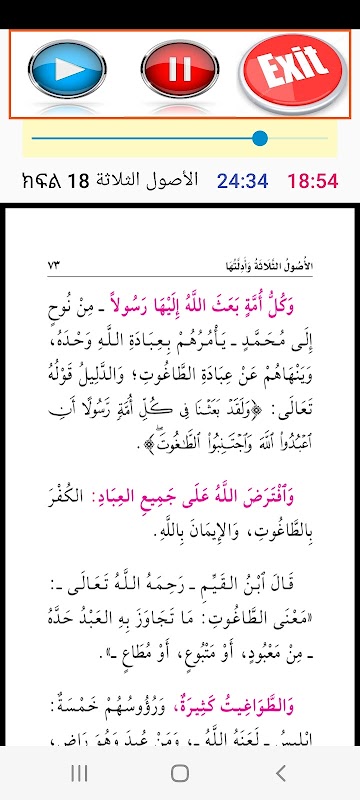 Exit
ክፍል 18 الأصول الثلاثة 24:34 18:54
الأُصُولُ الثَّلَاثَةُ وَأَدِلَّتُهَا ٧٣
وَكُلُّ أُمَّةٍ بَعَثَ اللَّهُ إِلَيْهَا رَسُولاً ـ مِنْ نُوحٍ
إِلَى مُحَمَّدٍ ـ يَأْمُرُهُمْ بِعِبَادَةِ اللَّهِ وَحْدَهُ،
وَيَنْهَاهُمْ عَنْ عِبَادَةِ الطَّاغُوتِ؛ وَالدَّلِيلُ قَوْلُهُ
تَعَالَى: ﴿وَلَقَدْ بَعَثْنَا فِي كُلِّ أُمَّةٍ رَّسُولًا أَنِ
ٱعْبُدُوا۟ ٱللَّهَ وَٱجْتَنِبُوا۟ ٱلطَّـٰغُوتَۖ﴾.
وَٱفْتَرَضَ اللَّهُ عَلَى جَمِيعِ العِبَادِ: الكُفْرَ
بِالطَّاغُوتِ، وَالإِيمَانَ بِاللَّهِ.
قَالَ ٱبْنُ القَيِّمِ ـ رَحِمَهُ اللَّهُ تَعَالَى ـ:
«مَعْنَى الطَّاغُوتِ: مَا تَجَاوَزَ بِهِ العَبْدُ حَدَّهُ
ـ مِنْ مَعْبُودٍ، أَوْ مَتْبُوعٍ، أَوْ مُطَاعٍ ـ».
وَالطَّوَاغِيتُ كَثِيرَةٌ، وَرُؤُوسُهُمْ خَمْسَةٌ:
إِبْلِيسُ ـ لَعَنَهُ اللَّهُ ـ، وَمَنْ عُبِدَ وَهُوَ رَاضٍ،